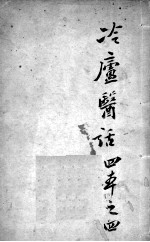 冷廬醫話四卷之四